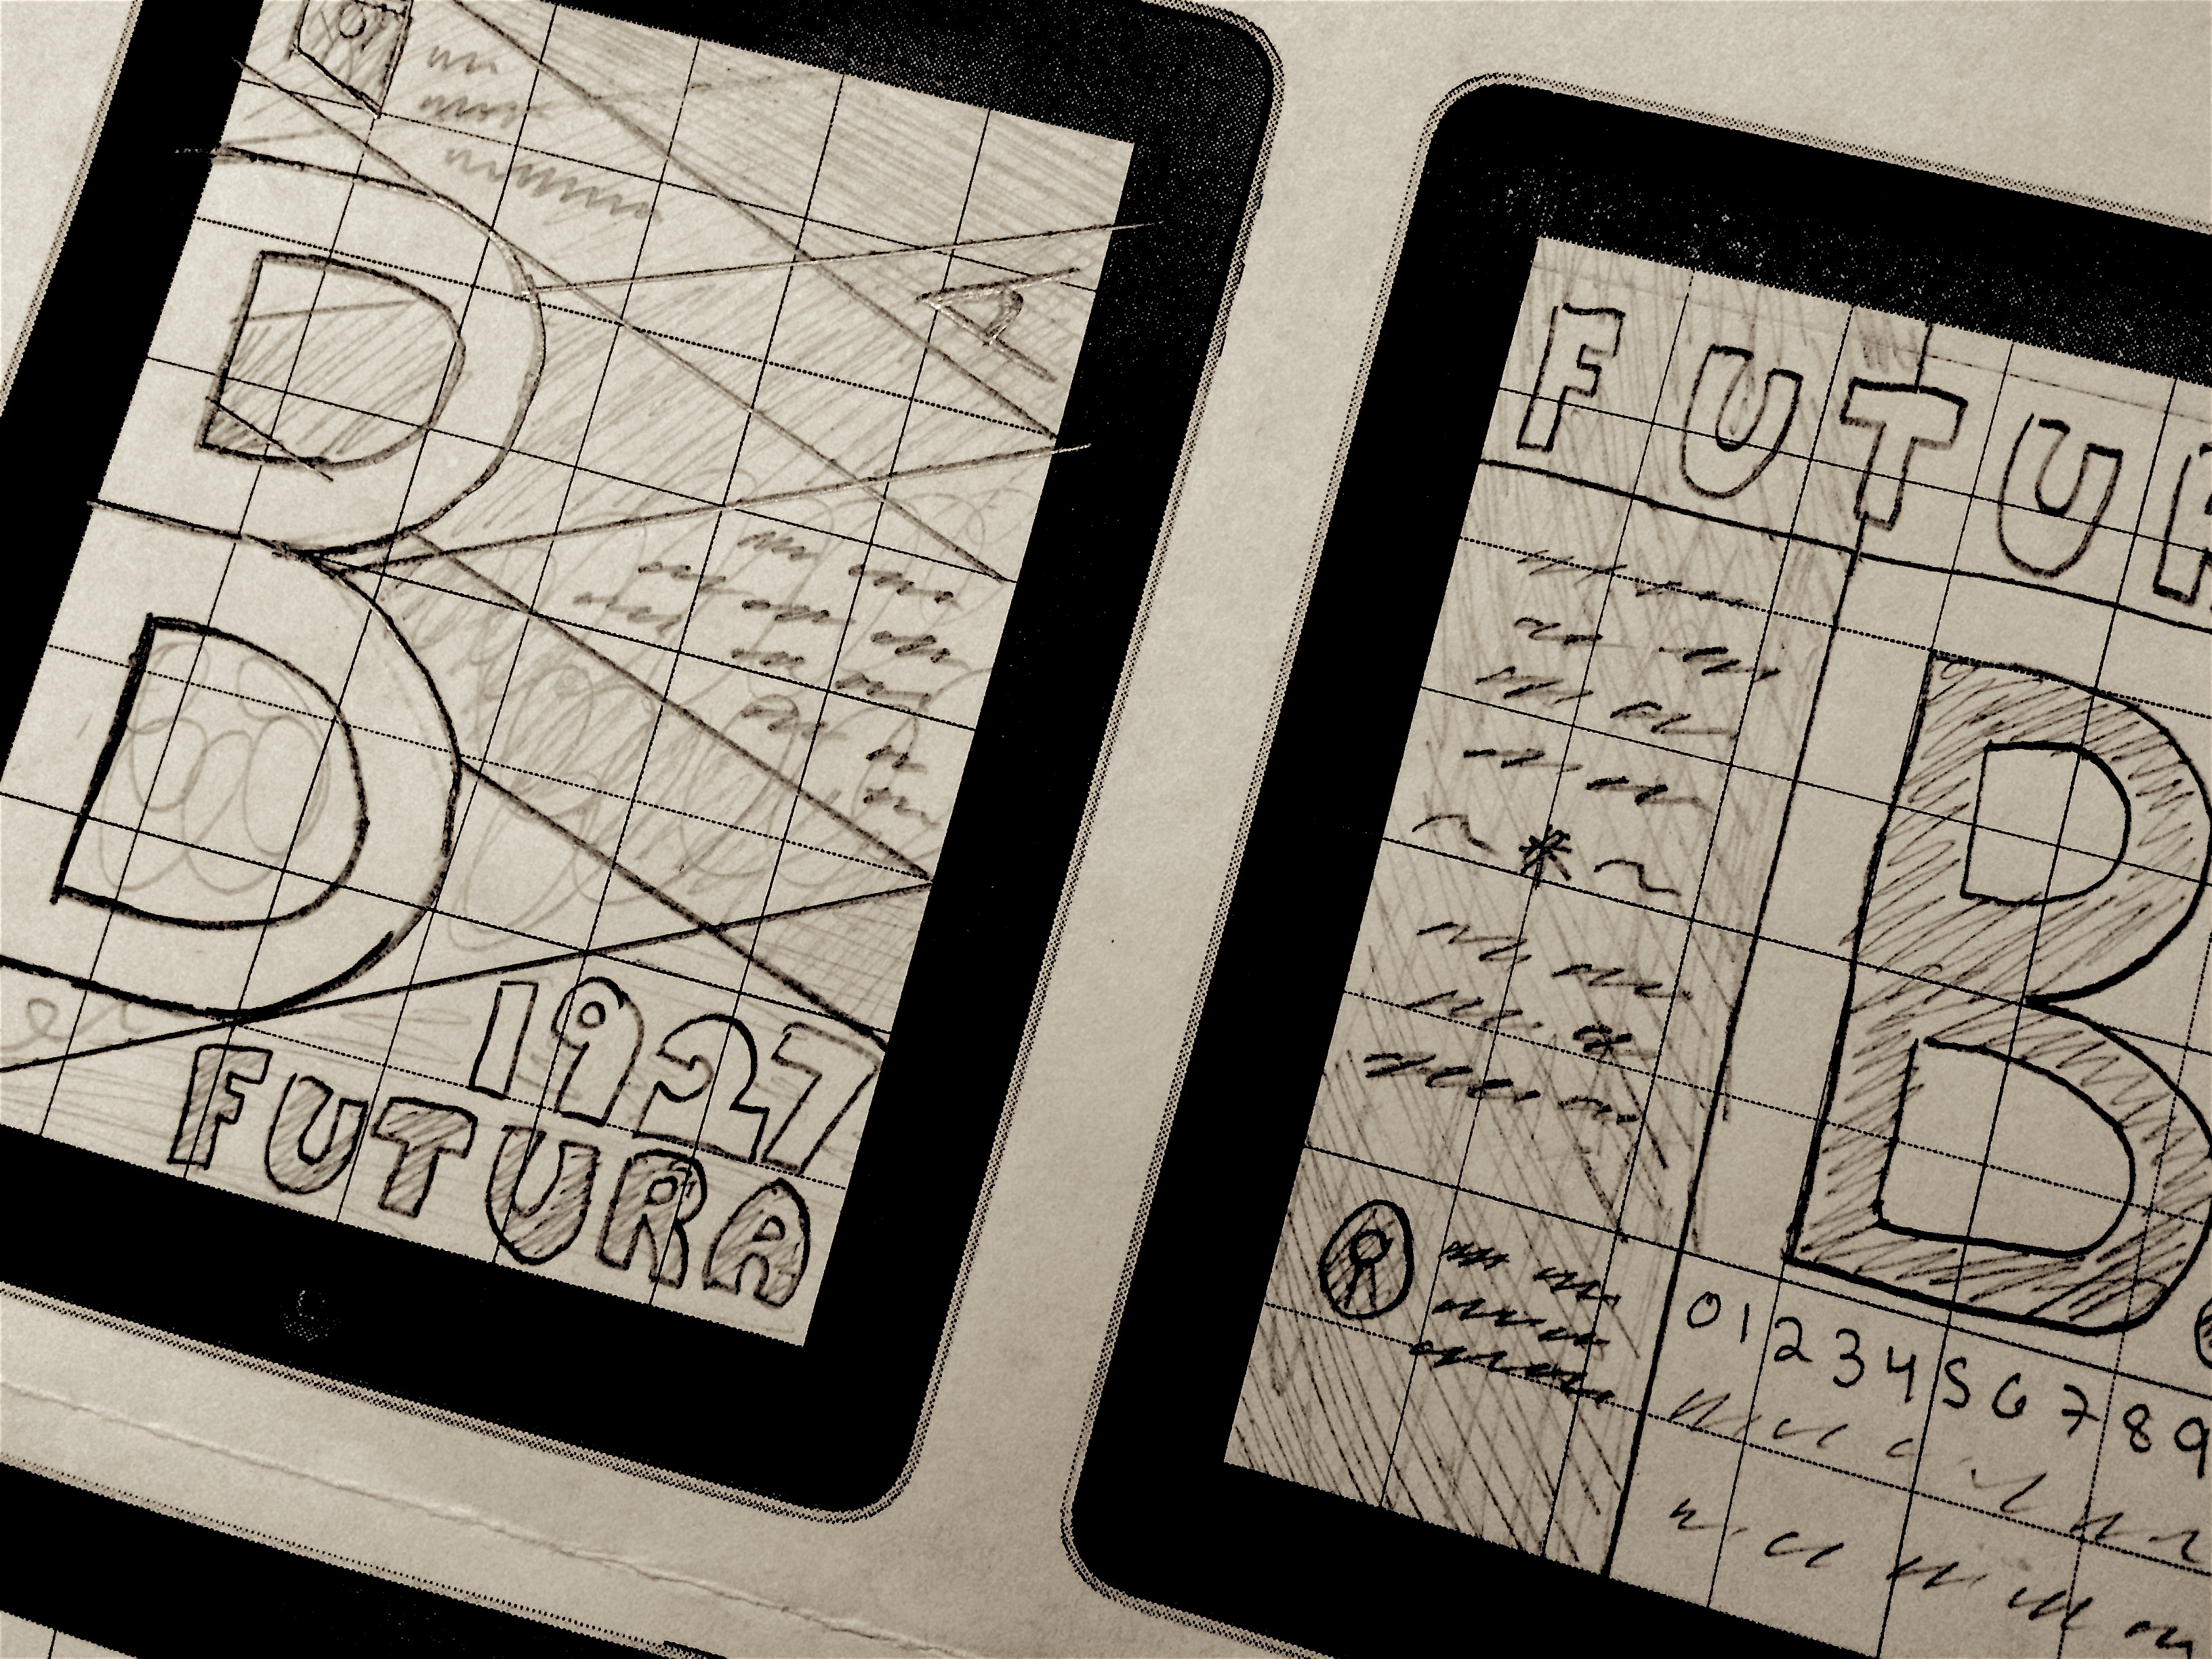 B
A
1927
FUTURA
FUTUR
B
R
0123456789